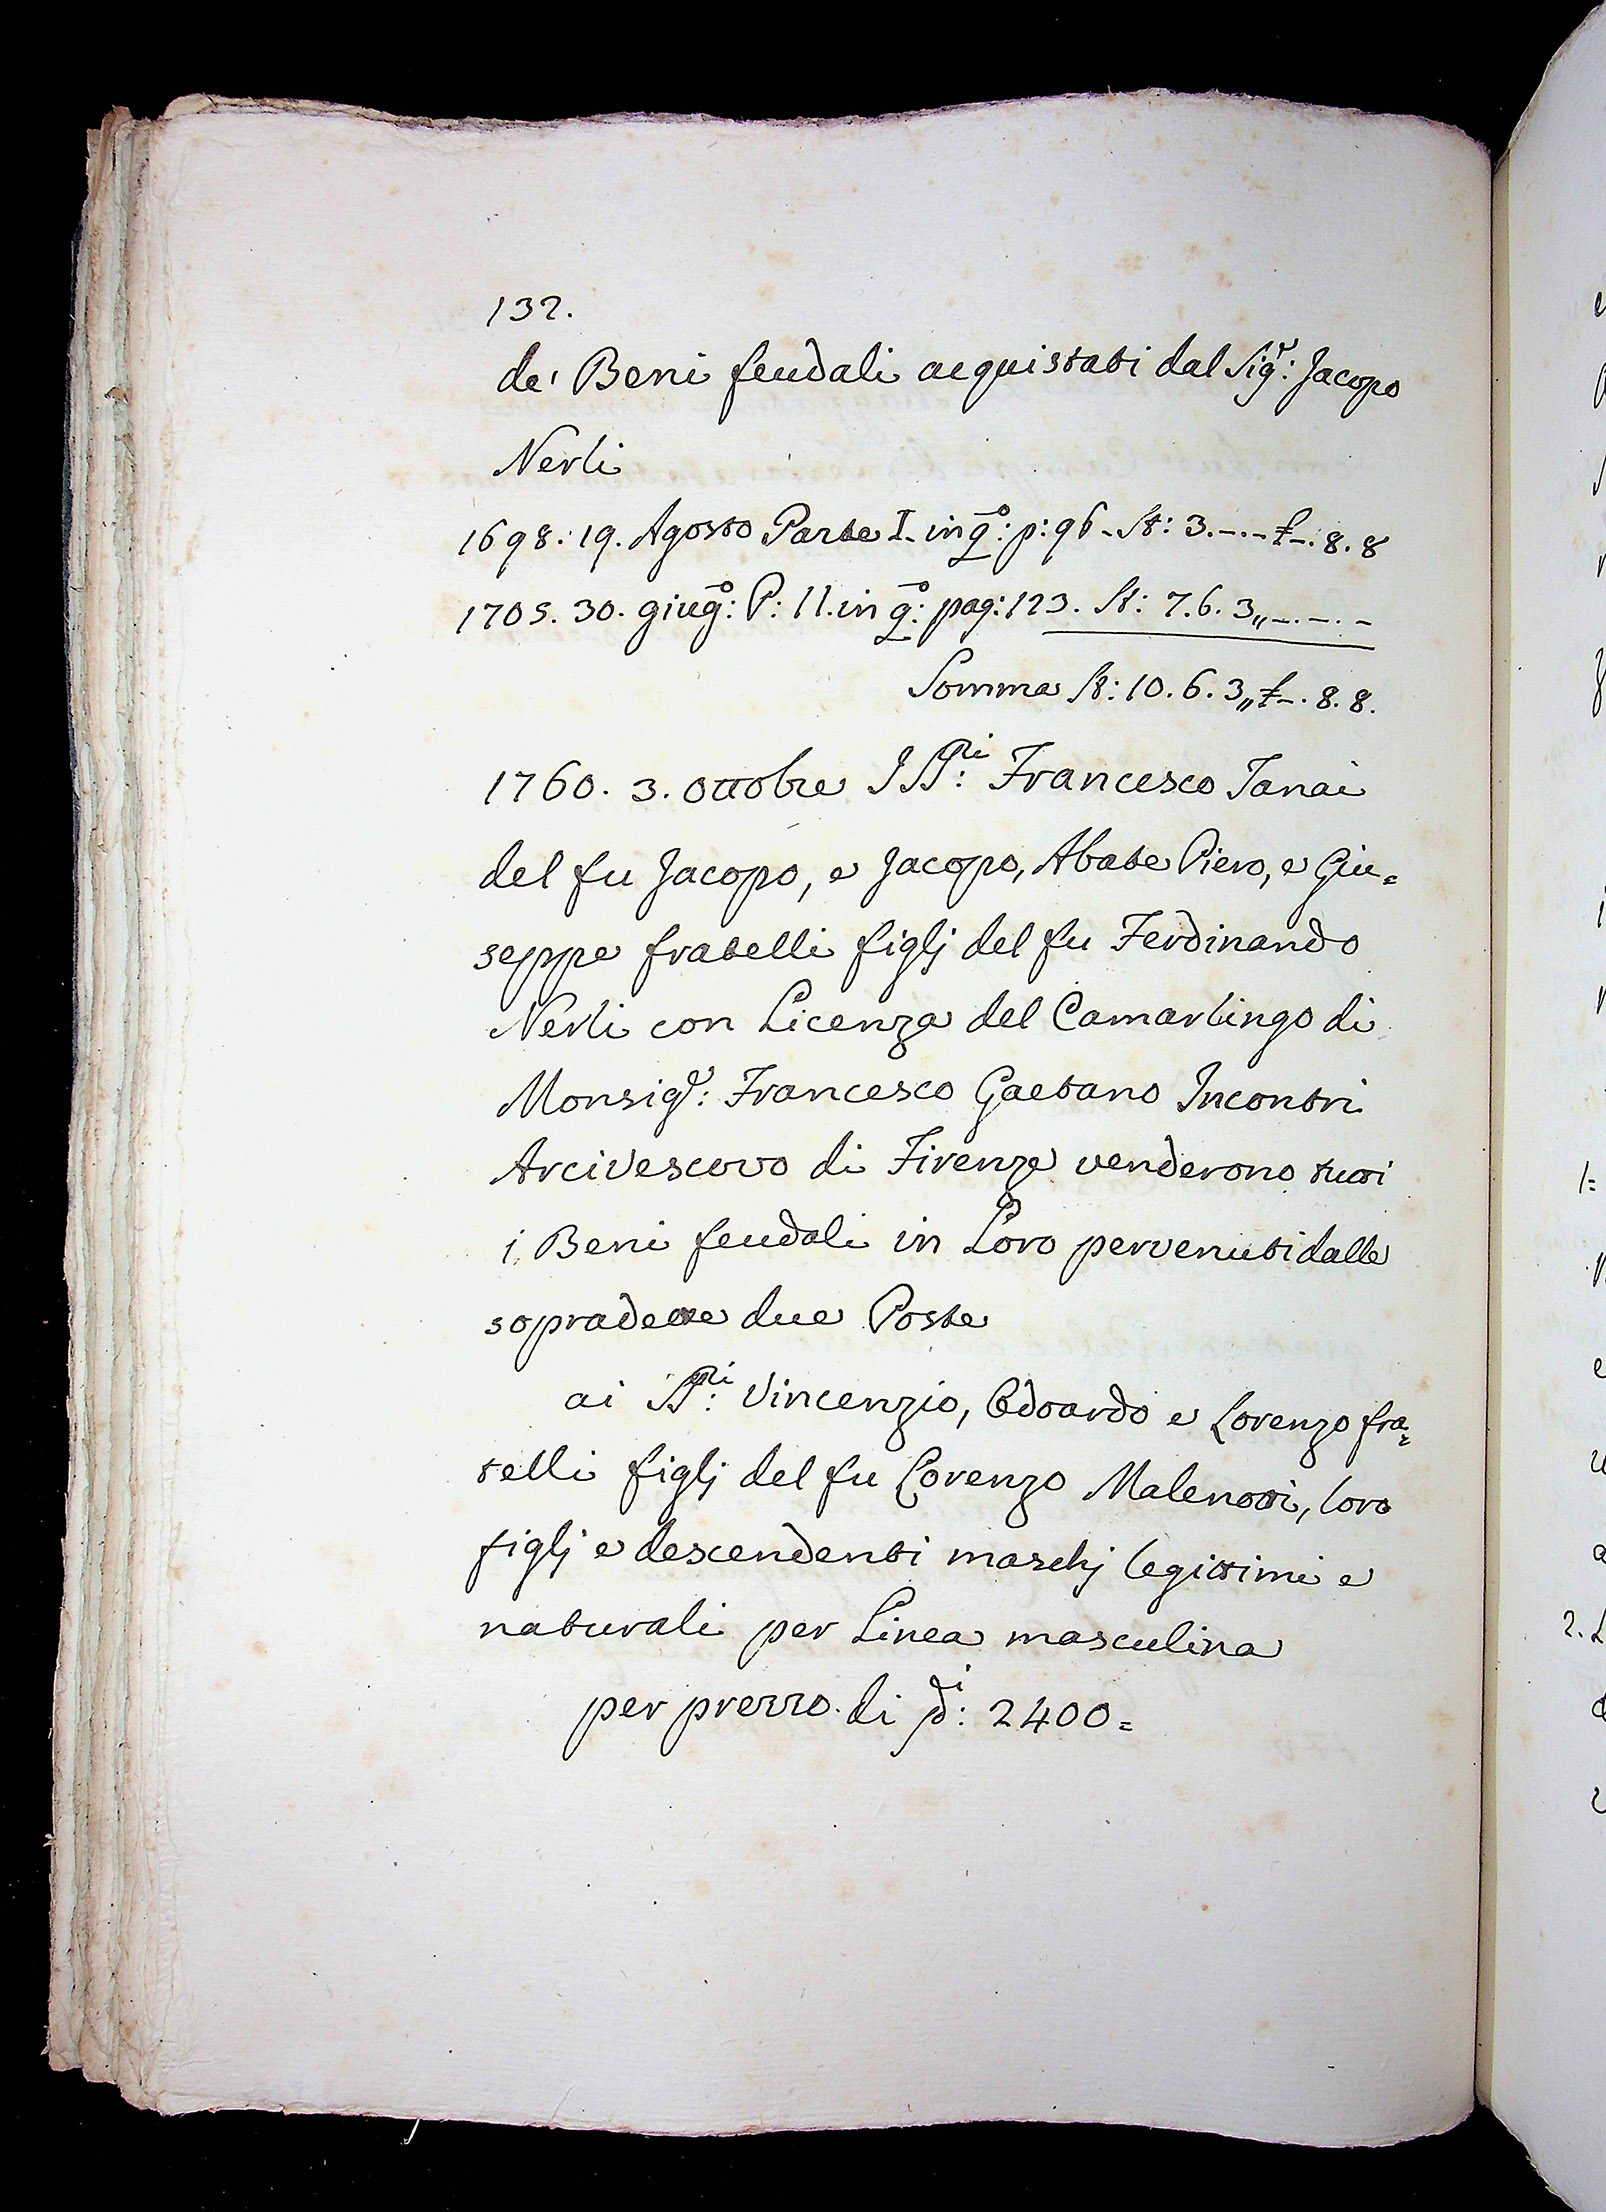 132.
de' Beni feudali acquistati dal Sig.r: Jacopo
Nerli
1698. 19. Agosto Parte I. in q.o: p: 96 - St: 3. -. - £ -. 8. 8
1705. 30. giug.o: P: II. in q.o: pag: 123. St: 7. 6. 3,, -. -. -
Somma St: 10. 6. 3,, £ -. 8. 8.
1760. 3. Ottobre I SS.ri: Francesco Tanai
del fu Jacopo, e Jacopo, Abate Piero, e Giu=
seppe fratelli figlj del fu Ferdinando
Nerli con Licenza del Camarlingo di
Monsig.r: Francesco Gaetano Incontri
Arcivescovo di Firenze venderono tutti
i Beni feudali in Loro pervenuti dalle
sopradette due Poste
ai SS.ri: Vincenzio, Odoardo e Lorenzo fra=
telli figlj del fu Lorenzo Malenotti, loro
figlj e descendenti maschj legittimi e
naturali per Linea masculina
per prezzo di di: 2400=